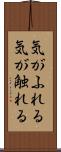 気がふれる
気が触れる